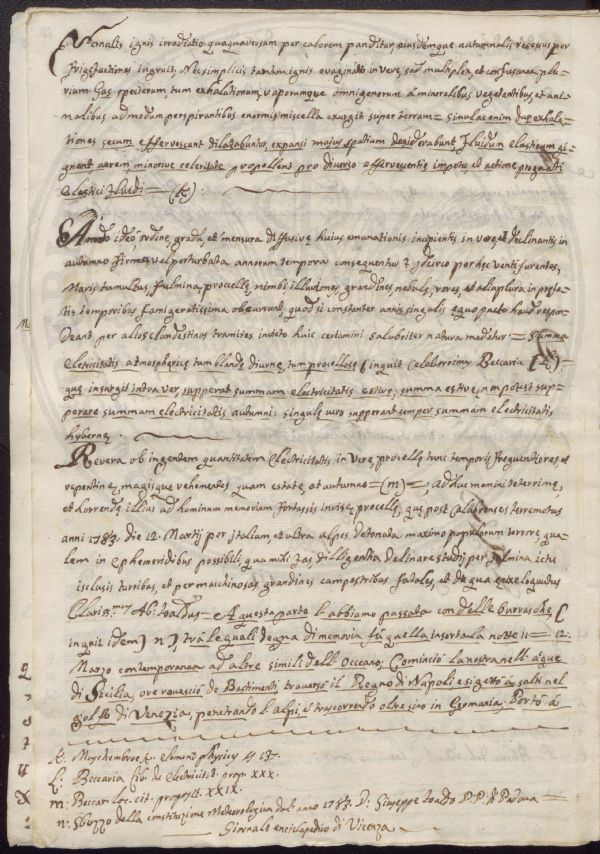 Vernalis ignis irradiatio quaquaversum per calorem panditur, eiusdemque autumnalis recessus per
frigefactiones ingruit; Nec simplicis tantum ignis evaginatio in vere, sed multiplex, et confusanea plu-
rium Gas specierum, tum exhalationum, vaporumque omnigenorum a mineralibus vegetantibus, et ani-
malibus admodum perspirantibus enormis miscella exurgit super terram = simulac enim due exhala-
tiones secum effervescunt dilatabuntur, expansi majus spatium desiderabunt, fluidum elasticum gi-
gnent aerem minorive celeritate propellent pro diverso effervescentie impetu, et actione progeniti
elastici fluidi = (k) :
Ando ideo ordine gradu, et mensura diffusive huius emanationis incipientis in vere, et declinantis in
autumno firma vel perturbata annorum tempora consequentur: idcirco per hec venti furentes,
Maris tumultus, fulmina, procelle, nimbi illuviones, grandines, nebule, rores, et alia plura in prefa-
tis temporibus famigeratissima obveniunt, quod si constanter annis singulis equo pacto haud respon-
deant per alios clandestinos tramites inito huic certamini salubriter natura meditur = Summa
electricitatis atmospherice tum blande diurne, tum procellose (inquit celeberrimus Beccaria (L) =
que insurgit intra ver, supperat summam electricitatis estive, summa estive non potest sup-
perare summam electricitatis autumni: singule vero supperant semper summam electricitatis
hyberne.
Revera ob ingentem quantitatem electricitatis in vere, procelle tunc temporis frequentiores, et
repentine, magisque vehementes quam estate, et autumno = (m) =, adhuc memini teterrime,
et horrende illius ad hominum memoriam fortassis invise procelle, que post Calabrenses terremotus
anni 1783. die 12. Martij per Italiam, et ultra alpes detonata maximo populorum terrore, qua-
lem in ephemeridibus possibili, qua mihi fas diligentia delineare studij per fulmina ictu
iselusis turribus, et per machinosas grandines campestribus fatales, et de qua eloquitus
Clariss.mus Ab: toaldus = A questa parte l'abbiamo passata con delle burrasche (
inquit idem) n), trà le quali degna di memoria fù quella insorta la notte 11 = 12.
Marzo contemporanea ad altre simili dell'Occeano, Cominciò la nostra nell'acque
di Sicilia, ove rovesciò de Bastimenti, traversò il Regno di Napoli e si gettò à salti nel
golfo di Venezia, penetrando l'alpi, e trascorrendo oltre sino in Germania, Portò à
k: Muschembroek. Element. physicę § 137.
L: Beccaria lib. de electricit. prop. XXX.
m: Beccar. loc. cit. proposit. XXIX.
n: Sbozzo della constituzione Meteorologica dell'anno 1783. D: Giuseppe toaldo P.P. di Padova
Giornale enciclopedico di Vicenza